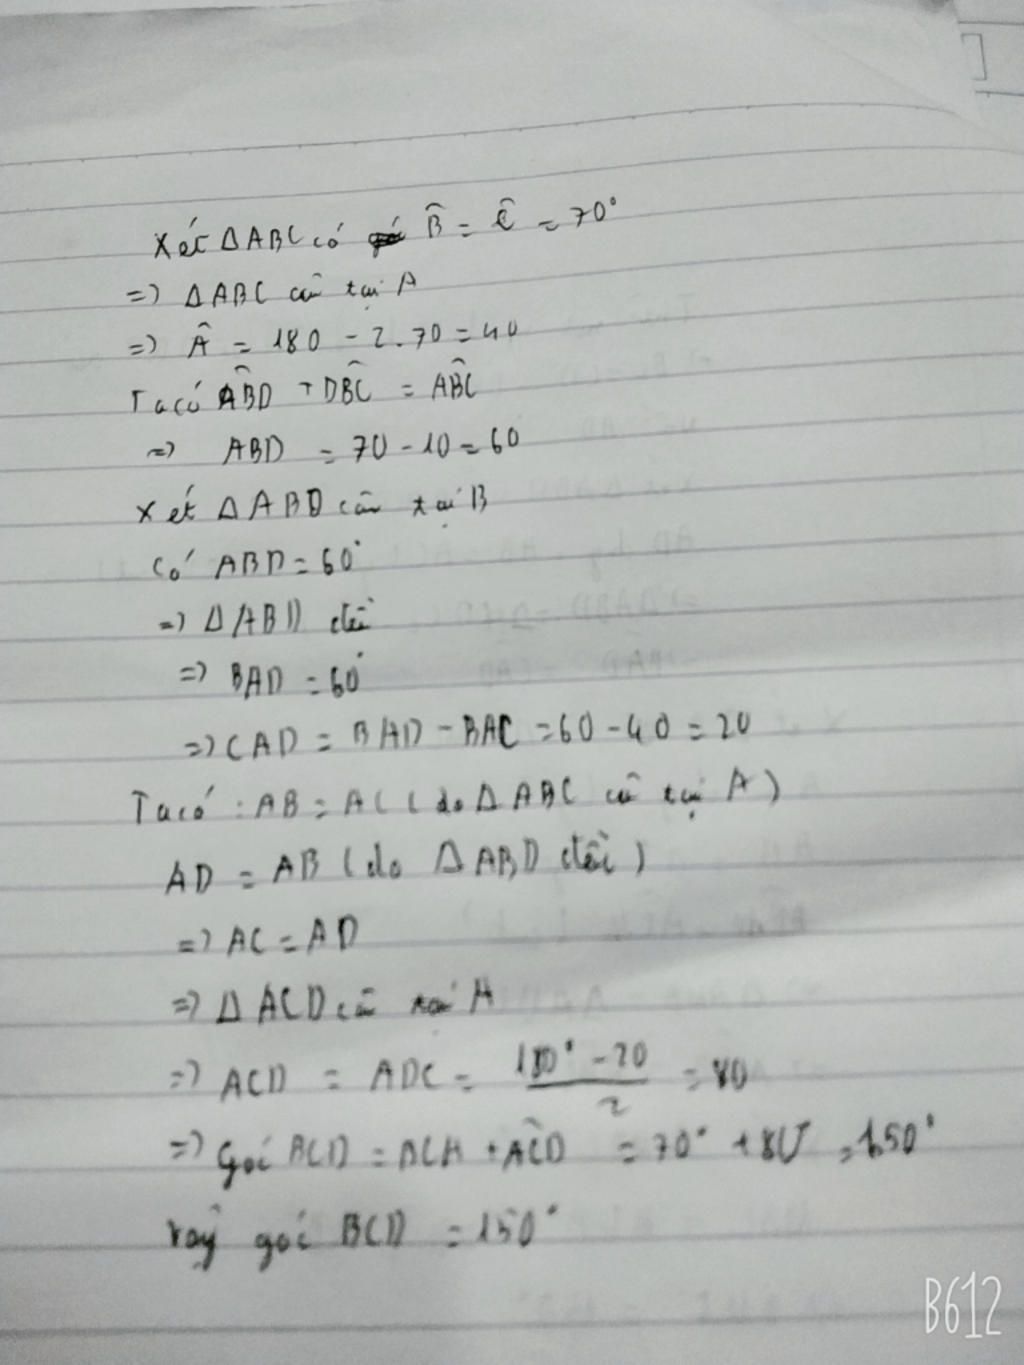 Xét ΔABC có B̂ = Ĉ = 70°
=> ΔABC cân tại A
=> Â = 180 - 2.70 = 40
Ta có ABD̂ + DBĈ = ABĈ
=> ABD = 70 - 10 = 60
Xét ΔABD cân tại B
Có ABD = 60°
=> ΔABD đều
=> BAD = 60°
=> CAD = BAD - BAC = 60 - 40 = 20
Ta có : AB = AC (do ΔABC cân tại A)
AD = AB (do ΔABD đều)
=> AC = AD
=> ΔACD cân tại A
=> ACD = ADC = (180° - 20)/2 = 80
=> Góc BCD = BCA + ACD̂ = 70° + 80 = 150°
Vậy góc BCD = 150°
B612